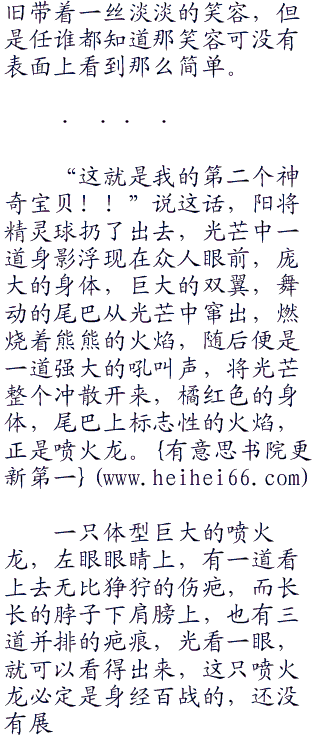 旧带着一丝淡淡的笑容，但
是任谁都知道那笑容可没有
表面上看到那么简单。
. . . .
“这就是我的第二个神
奇宝贝！！”说这话，阳将
精灵球扔了出去，光芒中一
道身影浮现在众人眼前，庞
大的身体，巨大的双翼，舞
动的尾巴从光芒中窜出，燃
烧着熊熊的火焰，随后便是
一道强大的吼叫声，将光芒
整个冲散开来，橘红色的身
体，尾巴上标志性的火焰，
正是喷火龙。{有意思书院更
新第一}(www.heihei66.com)
一只体型巨大的喷火
龙，左眼眼睛上，有一道看
上去无比狰狞的伤疤，而长
长的脖子下肩膀上，也有三
道并排的疤痕，光看一眼，
就可以看得出来，这只喷火
龙必定是身经百战的，还没
有展